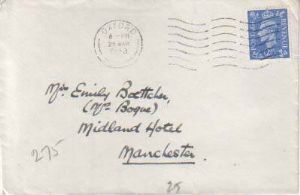 OXFORD
Miss Emily Boettcher,
(Mrs Bogue)
Midland Hotel
Manchester.
275
25